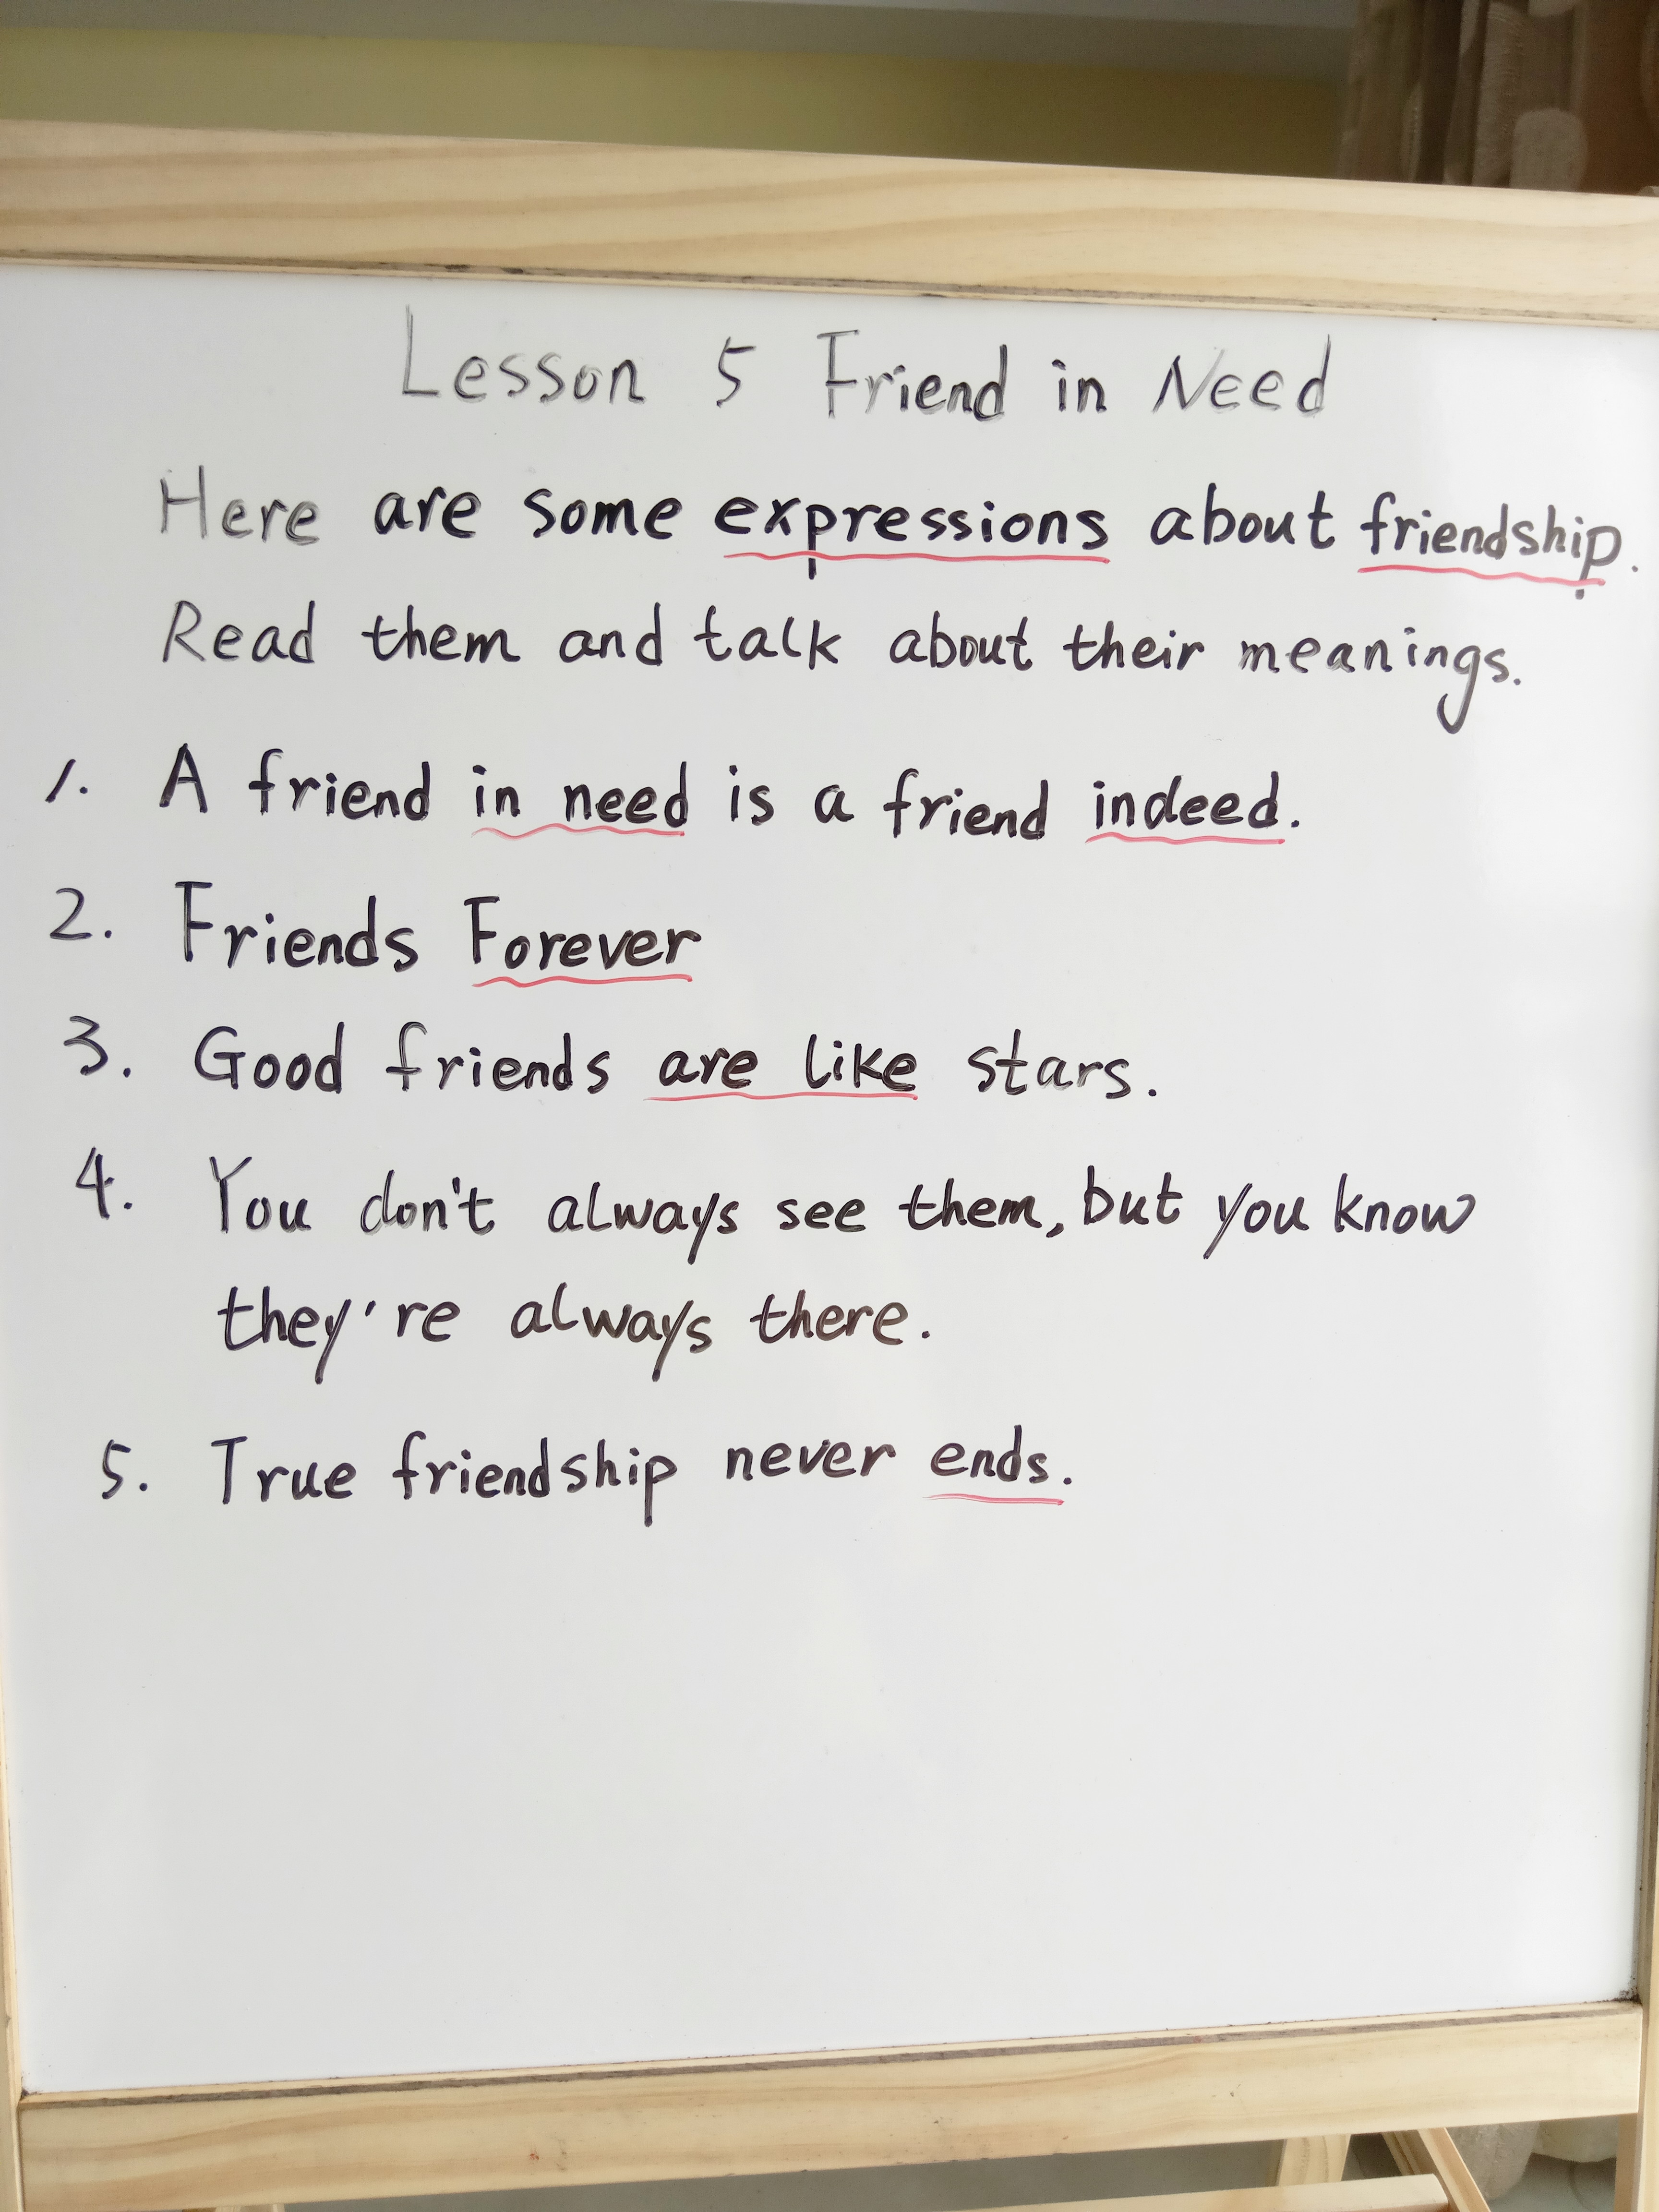 Lesson 5 Friend in Need
Here are some expressions about friendship.
Read them and talk about their meanings.
1. A friend in need is a friend indeed.
2. Friends Forever
3. Good friends are like stars.
4. You don't always see them, but you know
they're always there.
5. True friendship never ends.